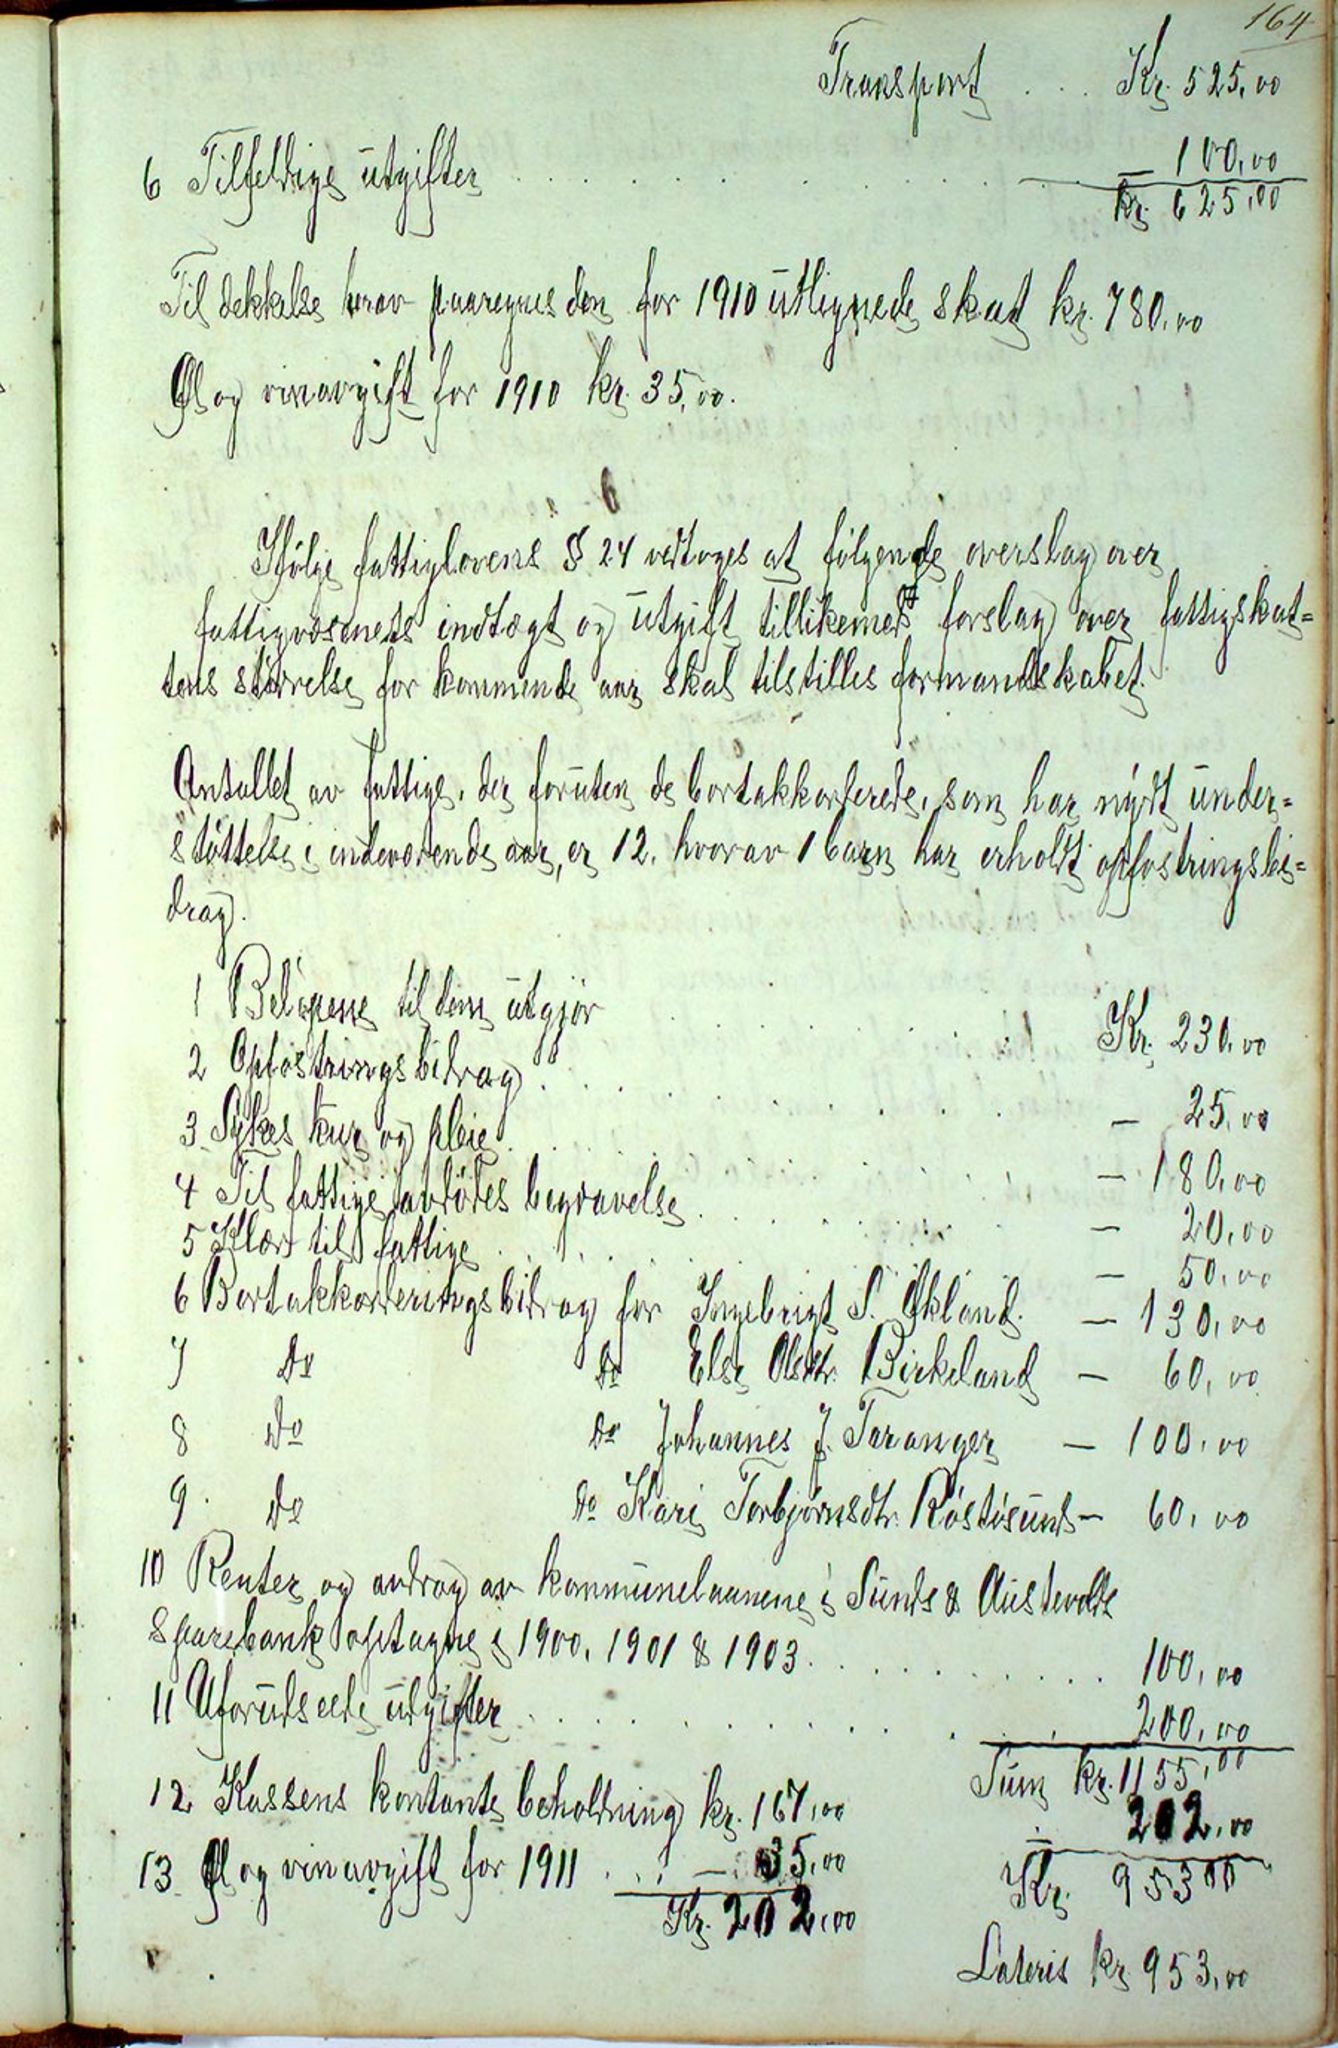 164
Transport . . . Kr. 525,00
6 Tilfeldige utgifter . . . . . . . . . — 100,00
Kr. 625,00
Til dekkelse herav paaregnes den for 1910 utlignede skat kr. 780,00
Øl og vinavgift for 1910 kr. 35,00.
Ifölge fattiglovens § 24 vedtoges at fölgende overslag over
fattigvæsenets indtægt og utgift tillikemed forslag over fattigskat=
tens störrelse for kommende aar skal tilstilles formandskabet.
Antallet av fattige, der foruten de bortakkorderede, som har nydt under=
stöttelse i indeværende aar, er 12, hvorav 1 barn har erholdt opfostringsbi=
drag.
1 Belöpene til dem utgjör . . . . . . Kr. 230,00
2 Opfostringsbidrag . . . . . . . . — 25,00
3 Sykes kur og pleie . . . . . . . . — 180,00
4 Til fattige avdödes begravelse . . . . . . — 20,00
5 Klær til fattige . . . . . . . — 50,00
6 Bortakkorderingsbidrag for Ingebrigt S. Økland. — 130,00
7 do do Else Olsdtr. Birkeland — 60,00
8 do do Johannes J. Taranger — 100,00
9 do do Kari Torbjørnsdtr. Röstösund — 60,00
10 Renter og avdrag av kommunelaanene i Sunds & Austevolds
sparebank optagne i 1900, 1901 & 1903 . . . . . . . . 100,00
11 Uforudseede utgifter . . . . . . . . . 200,00
Sum kr. 1155,00
12 Kassens kontante beholdning kr. 167,00
— 202,00
13 Øl og vinavgift for 1911 . . . — 35,00
Kr. 953 00
Kr. 202,00
Lateris kr. 953,00